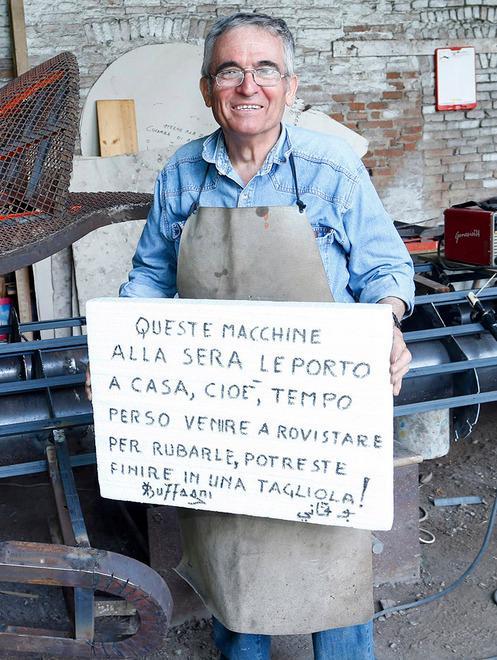 QUESTE MACCHINE
ALLA SERA LE PORTO
A CASA, CIOE', TEMPO
PERSO VENIRE A ROVISTARE
PER RUBARLE, POTRESTE
FINIRE IN UNA TAGLIOLA!
Buffagni